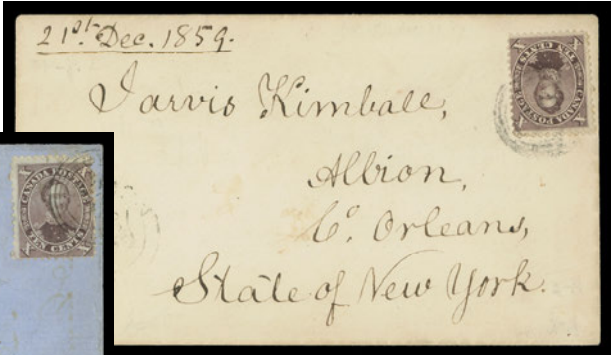 21st. Dec. 1859.
Jarvis Kimball,
Albion,
Co. Orleans,
State of New York.
X X
CANADA POSTAGE
TEN CENTS
X X
X X
CANADA POSTAGE
TEN CENTS
X X